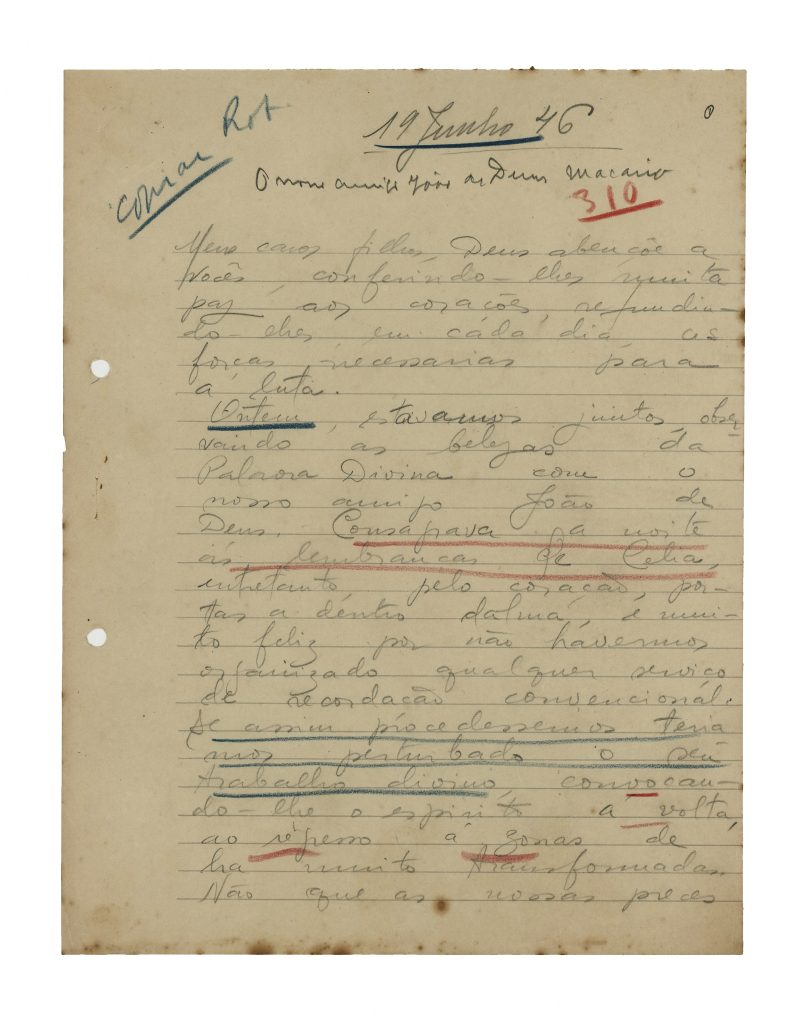 copiar Rot
19 Junho 46
O nosso amigo João de Deus Macario
310
Meus caros filhos, Deus abençõe a
vocês, conferindo-lhes muita
paz aos corações, refundin-
do-lhes em cáda dia as
forças necessarias para
a luta.
Ontem, estavamos juntos, obser-
vando as belezas da
Palavra Divina com o
nosso amigo João de
Deus. Consagrava a noite
ás lembranças de Celia,
entretanto, pelo coração, por-
tas a déntro dalma, é mui-
to feliz por não havermos
organizado qualquer serviço
de recordação convencionál.
Se assim procedessemos teria
mos perturbado o seu
trabalho divino, convocan-
do-lhe o espirito á volta,
ao régresso á zonas de
ha muito transformadas.
Não que as nossas preces